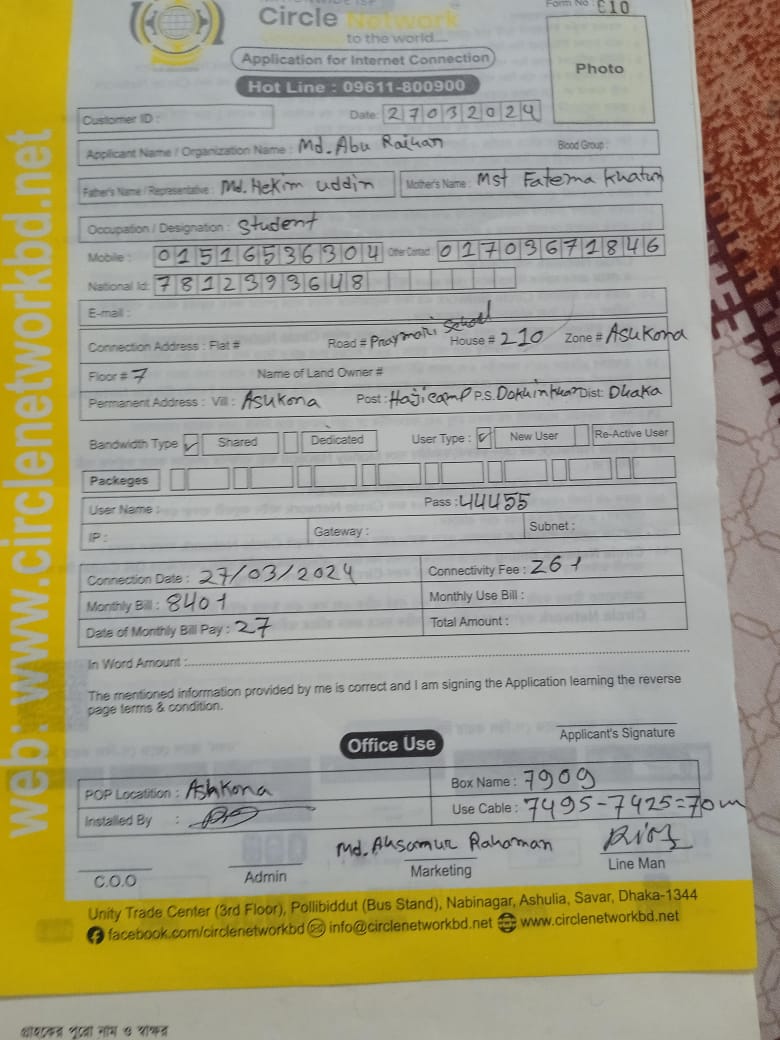 Form No : C10
Circle Network
to the world....
Application for Internet Connection
Hot Line : 09611-800900
Photo
Customer ID :
Date: 27032024
Applicant Name / Organization Name : Md. Abu Raihan Blood Group :
Father's Name / Representative : Md. Hekim uddin Mother's Name : Mst Fatema Khatun
Occupation / Designation : Student
Mobile : 01516536304 Other Contact 01703671846
National Id: 7812393648
E-mail :
Connection Address : Flat # Road # Praymari School House # 210 Zone # Asukona
Floor # 7 Name of Land Owner #
Permanent Address : Vill : Asukona Post : Hajicamp P.S. Dokhinkhan Dist: Dhaka
Bandwidth Type ✓ Shared Dedicated User Type : ✓ New User Re-Active User
Packeges
User Name : Pass : 44455
IP : Gateway : Subnet :
Connection Date : 27/03/2024 Connectivity Fee :
Monthly Bill : Monthly Use Bill :
Date of Monthly Bill Pay : 27 Total Amount :
In Word Amount :
The mentioned information provided by me is correct and I am signing the Application learning the reverse
page terms & condition.
Applicant's Signature
Office Use
POP Locatition : Ashkona Box Name : 7909
Installed By : Use Cable : 7495-7425=70m
Md. Ahsamur Rahaman
C.O.O Admin Marketing Line Man
Unity Trade Center (3rd Floor), Pollibiddut (Bus Stand), Nabinagar, Ashulia, Savar, Dhaka-1344
facebook.com/circlenetworkbd info@circlenetworkbd.net www.circlenetworkbd.net
web: www.circlenetworkbd.net
গ্রাহকের পুরো নাম ও স্বাক্ষর